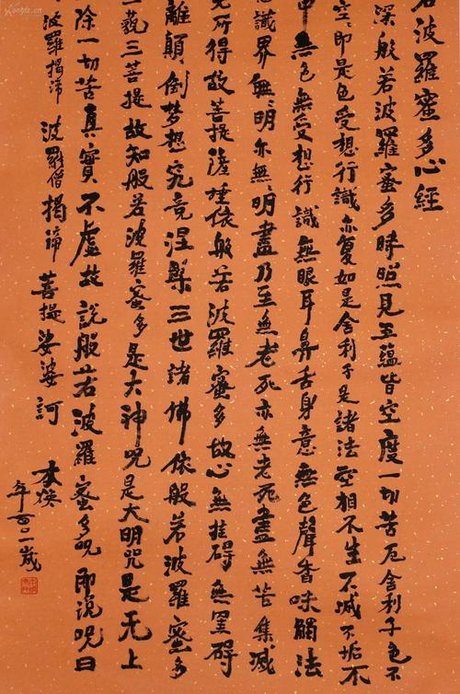 若波羅蜜多心經
深般若波羅蜜多時照見五蘊皆空度一切苦厄舍利子色不
空即是色受想行識亦复如是舍利子是諸法空相不生不滅不垢不
中無色無受想行識無眼耳鼻舌身意無色聲香味觸法
識界無〻明亦無〻明盡乃至無老死亦無老死盡無苦集滅
无所得故菩提薩埵依般若波羅蜜多故心無挂碍無罣碍
離顛倒梦想究竟涅槃三世諸佛依般若波羅蜜多
藐三菩提故知般若波羅蜜多是大神咒是大明咒是无上
除一切苦真實不虛故說般若波羅蜜多咒即說咒曰
波羅揭諦 波羅僧揭諦 菩提娑婆訶
本煥
年一百〇一歲